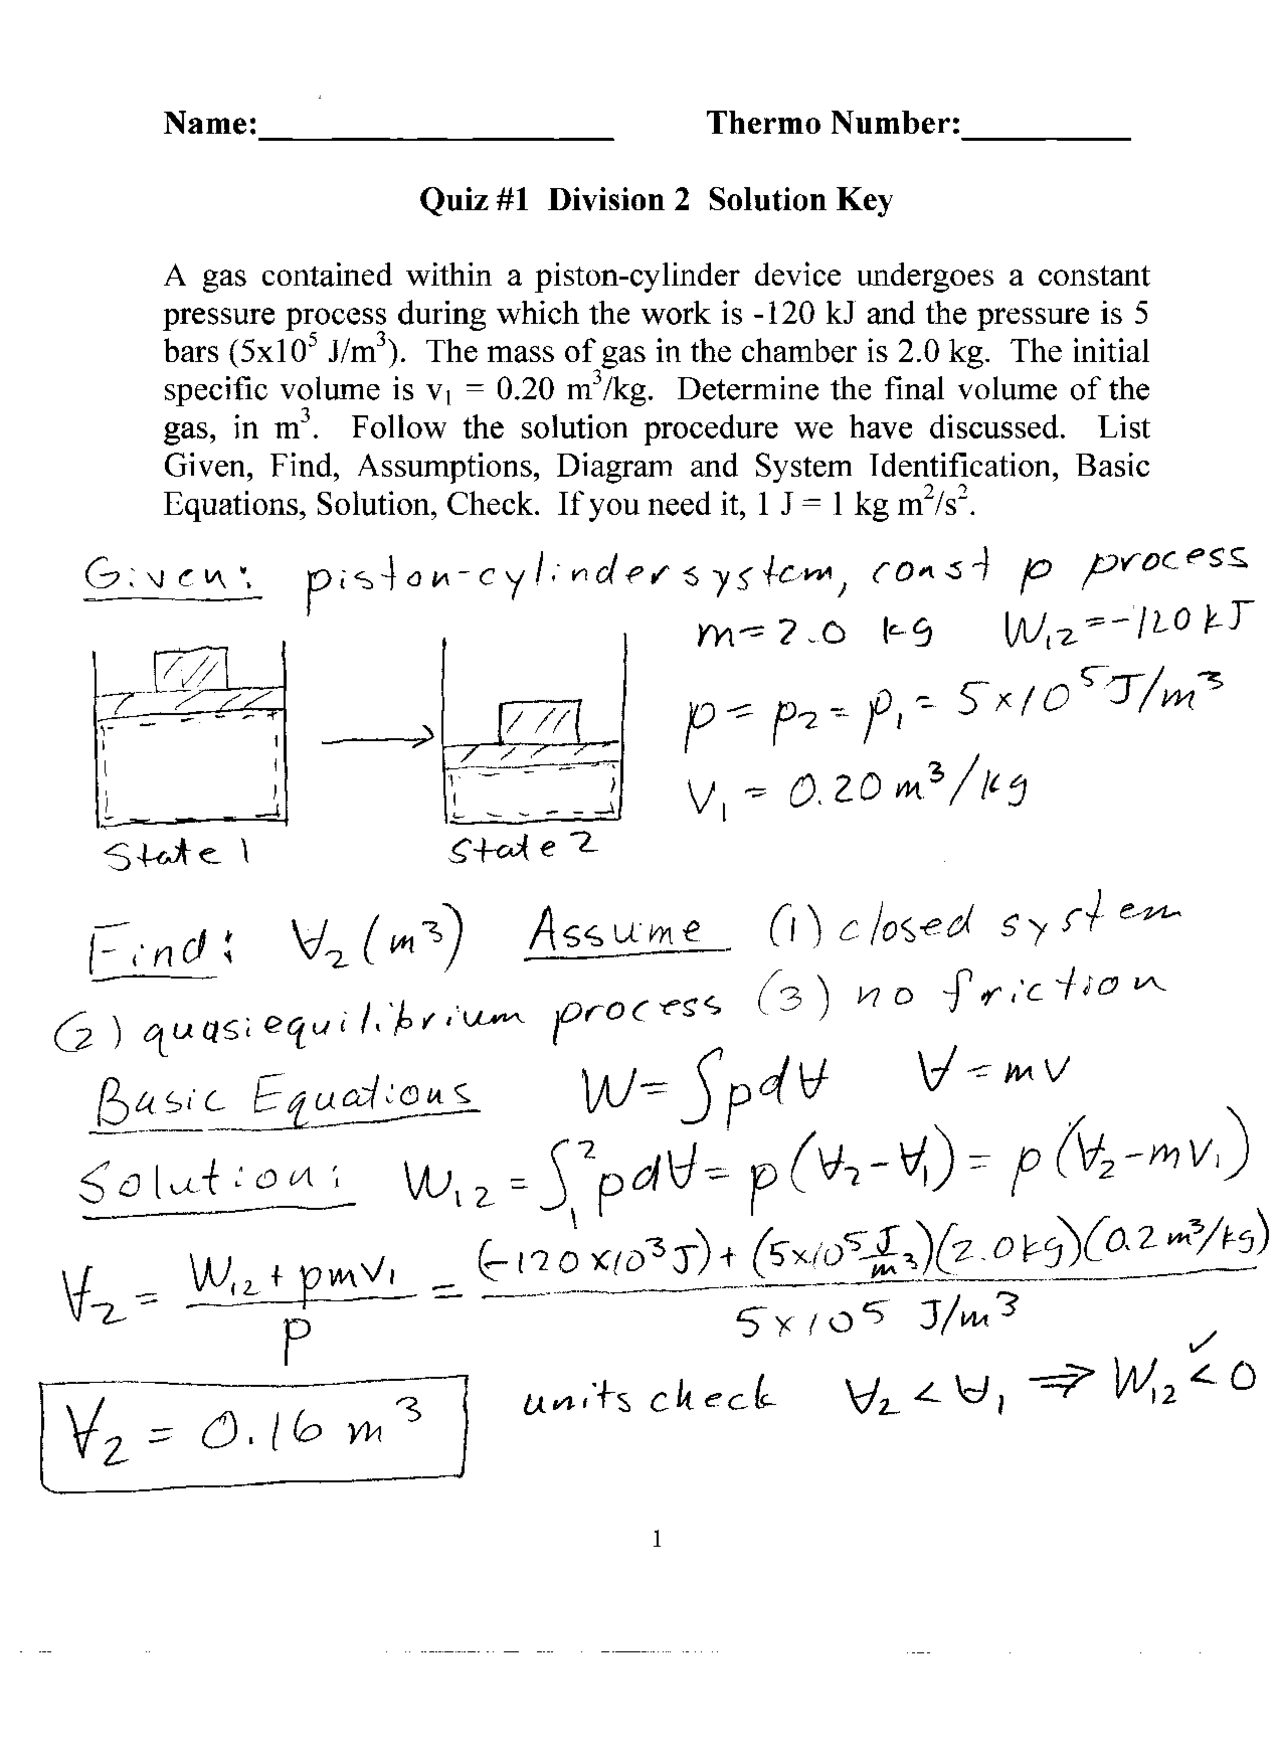 Name:____________________ Thermo Number:__________
Quiz #1 Division 2 Solution Key
A gas contained within a piston-cylinder device undergoes a constant
pressure process during which the work is -120 kJ and the pressure is 5
bars (5x10⁵ J/m³). The mass of gas in the chamber is 2.0 kg. The initial
specific volume is v₁ = 0.20 m³/kg. Determine the final volume of the
gas, in m³. Follow the solution procedure we have discussed. List
Given, Find, Assumptions, Diagram and System Identification, Basic
Equations, Solution, Check. If you need it, 1 J = 1 kg m²/s².
Given: piston-cylinder system, const p process
m = 2.0 kg W₁₂ = -120 kJ
p = p₂ = p₁ = 5 x 10⁵ J/m³
v₁ = 0.20 m³/kg
State 1 State 2
Find: V₂ (m³) Assume (1) closed system
(2) quasiequilibrium process (3) no friction
Basic Equations W = ∫pdV V = mv
Solution: W₁₂ = ∫₁² pdV = p(V₂ - V₁) = p(V₂ - mv₁)
V₂ = (W₁₂ + pmv₁)/p = ((-120 x 10³ J) + (5x10⁵ J/m³)(2.0 kg)(0.2 m³/kg))/(5 x 10⁵ J/m³)
V₂ = 0.16 m³ units check V₂ < V₁ ⇒ W₁₂ < 0 ✓
1